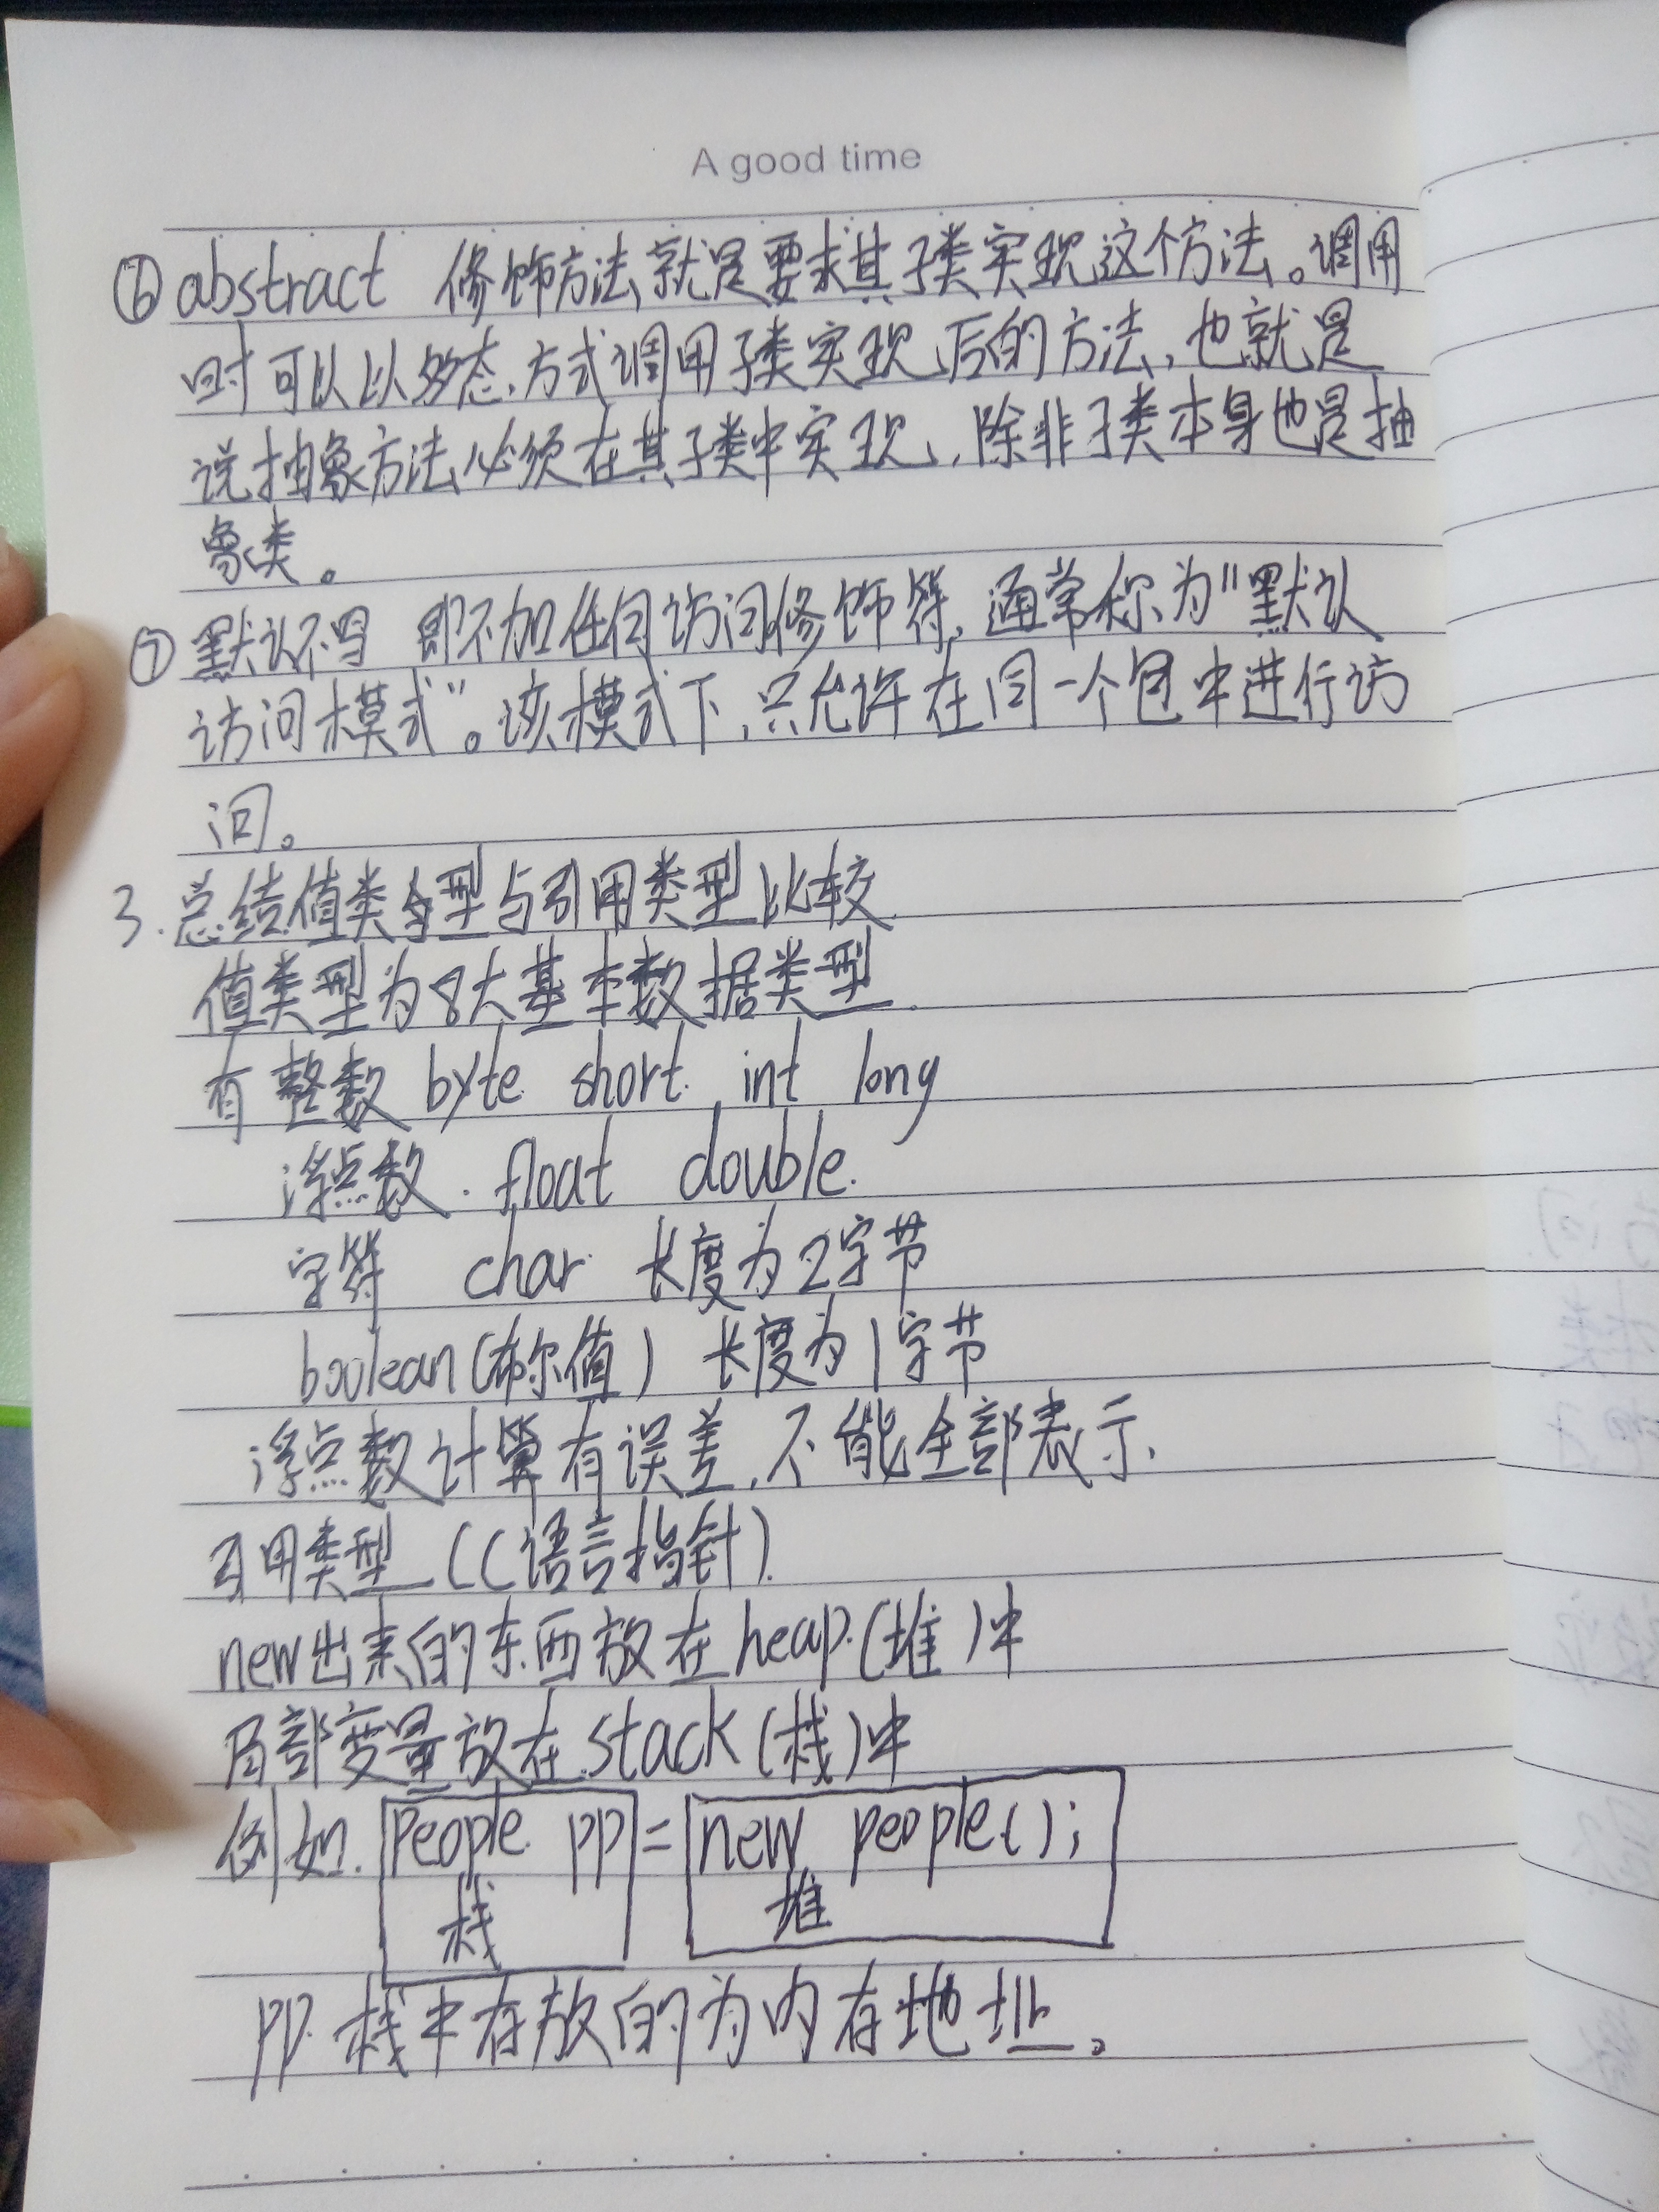 A good time
⑥ abstract 修饰方法,就是要求其子类实现这个方法。调用
时可以以多态方式调用子类实现后的方法,也就是
说抽象方法必须在其子类中实现,除非子类本身也是抽
象类。
⑦ 默认不写 即不加任何访问修饰符,通常称为"默认
访问模式"。该模式下,只允许在同一个包中进行访
问。
3.总结值类型与引用类型比较
值类型为8大基本数据类型
有整数 byte short int long
浮点数. float double.
字符 char 长度为2字节
boolean(布尔值) 长度为1字节
浮点数计算有误差,不能全部表示.
引用类型 (C语言指针)
new出来的东西放在heap(堆)中
局部变量放在stack(栈)中
例如. People pp = new people();
栈 堆
pp 栈中存放的为内存地址。